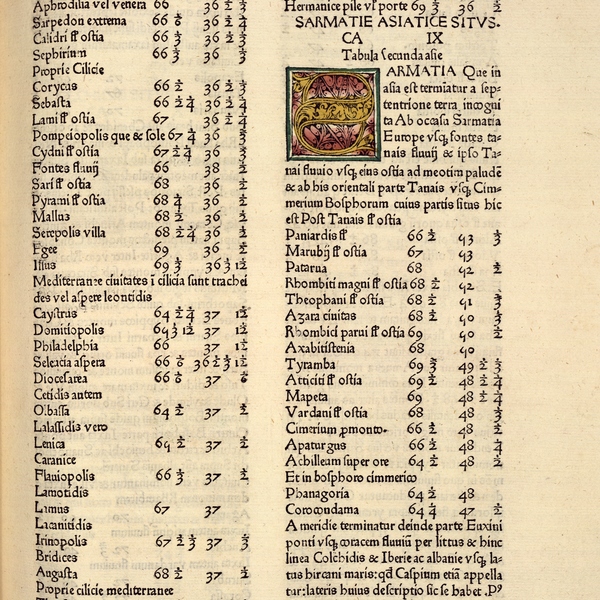 Aphrodisia vel venera 66 36 ½ ⅓
Sarpedon extrema 66 ⅙ 36 ½ ¼
Calidni fl' ostia 66 ⅓ 36 ½
Sephirium 66 ⅓ 36 ⅓
Proprie Cilicie
Corycus 66 ½ 36 ½ ⅓
Sebasta 66 ½ ¼ 36 ½ ¼
Lami fl' ostia 67 36 ½ ¼
Pompeiopolis que & sole 67 ¼ 36 ⅓
Cydni fl' ostia 67 ½ ¼ 36 ⅓
Fontes fluuij 66 38 ½
Sari fl' ostia 68 36 ½
Pyrami fl' ostia 68 ¼ 36 ½
Mallus 68 ½ 36 ½
Serepolis villa 68 ½ ¼ 36 ½
Egee 69 36 ½
Issus 69 ⅓ 36 ⅓ 12
Mediterranee ciuitates ī cilicia sunt trachei
des vel aspere leontidis
Caystrus 64 ½ ¼ 37 12
Domitiopolis 37 12
Philadelphia 66 37 12
Seleucia aspera 66 ⅙ 36 ½ ⅓ 12
Diocesarea 66 ⅙ 37 ⅙
Cetidis autem
Olbassa 64 ½ 37 ½
Lalassidis vero
Lenica 37 ½
Caranice
Flauiopolis 66 ⅓ 37 ½
Lamotidis
Lamus 67 37
Lacanitidis
Irinopolis 67 ½ ⅓ 37 ½
Bridices
Augusta 68 ½ 37 ½
Proprie cilicie mediterranee
Hermanice pile vl' porte 69 ⅓ 36 ½
SARMATIE ASIATICE SITVS.
CA IX
Tabula secunda asie
SARMATIA Que in
asia est termīatur a sep-
tentrione terra incogni
ta Ab occasu Sarmatia
Europe vsq; fontes ta-
nais fluuij & ipso Ta-
nai fluuio vsq; eius ostia ad meotim paludē
& ab his orientali parte Tanais vsq; Cim-
merium Bosphorum cuius partis situs hic
est Post Tanais fl' ostia
Paniardis fl' 66 ½ 93 ⅓
Marubij fl' ostia 67 93
Patarua 68 92 ½
Rhombiti magni fl' ostia 68 ½ 92
Theophani fl' ostia 68 ½ 91 ⅔
Azara ciuitas 68 ½ 90 ⅓
Rhombici parui fl' ostia 69 90 ½
Axabitistenia 68 90
Tyramba 69 ⅔ 49 ½ ⅓
Atticiti fl' ostia 69 ½ 48 ½ ¼
Mapeta 69 48 ½ ¼
Vardani fl' ostia 68 48 ⅓
Cimerium ꝓmonto. 66 ½ 48 ½
Apaturgus 66 ½ 48 ¼
Achilleam super ore 64 ½ 48 ½
Et in bosphoro cimerico
Phanagoria 64 ½ 48
Corocondama 64 ¼ 47 ½
A meridie terminatur deinde parte Euxini
ponti vsq; coracem fluuiū per littus & hinc
linea Colchidis & Iberie ac albanie vsq; la-
tus hircani maris: qd Caspium etiā appella
tur: lateris huius descriptio sic se habet .P⁹